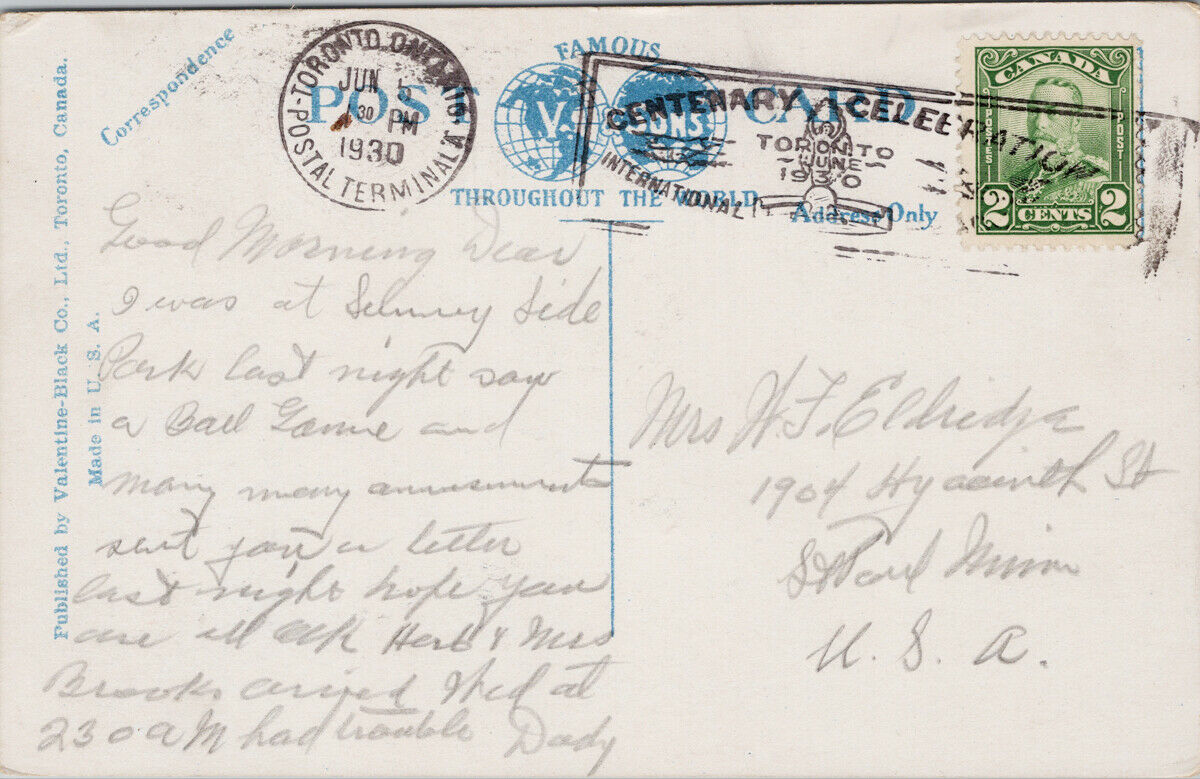 Correspondence
FAMOUS
POST CARD
V. & SONS
THROUGHOUT THE WORLD
Address Only
TORONTO, ONTARIO
JUN
30 PM
1930
POSTAL TERMINAL A
CENTENARY CELEBRATION
TORONTO
JUNE
1930
INTERNATIONAL
CANADA
POSTES POST
2 CENTS 2
Published by Valentine-Black Co., Ltd., Toronto, Canada.
Made in U. S. A.
Good Morning Dear
I was at Sunny Side
Park last night saw
a Ball Game and
many many amusements
sent you a letter
last night hope you
are all ok Herb & Mrs
Brooks arrived Wed at
230 AM had trouble Dady
Mrs W. F. Eldridge
1904 Hyacinth St
St Paul Minn
U. S. A.